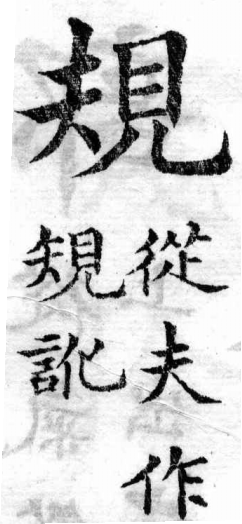 規
從夫作
䂓訛